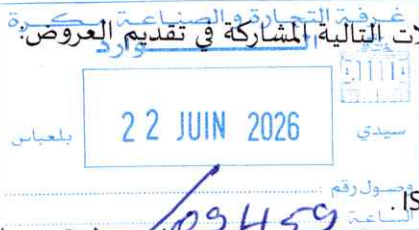 غرفة التجارة و الصناعة مكرة
لات التالية المشاركة في تقديم العروض:
الوارد
22 JUIN 2026
سيدي
بلعباس
وصول رقم
IS.
الساعة
09459